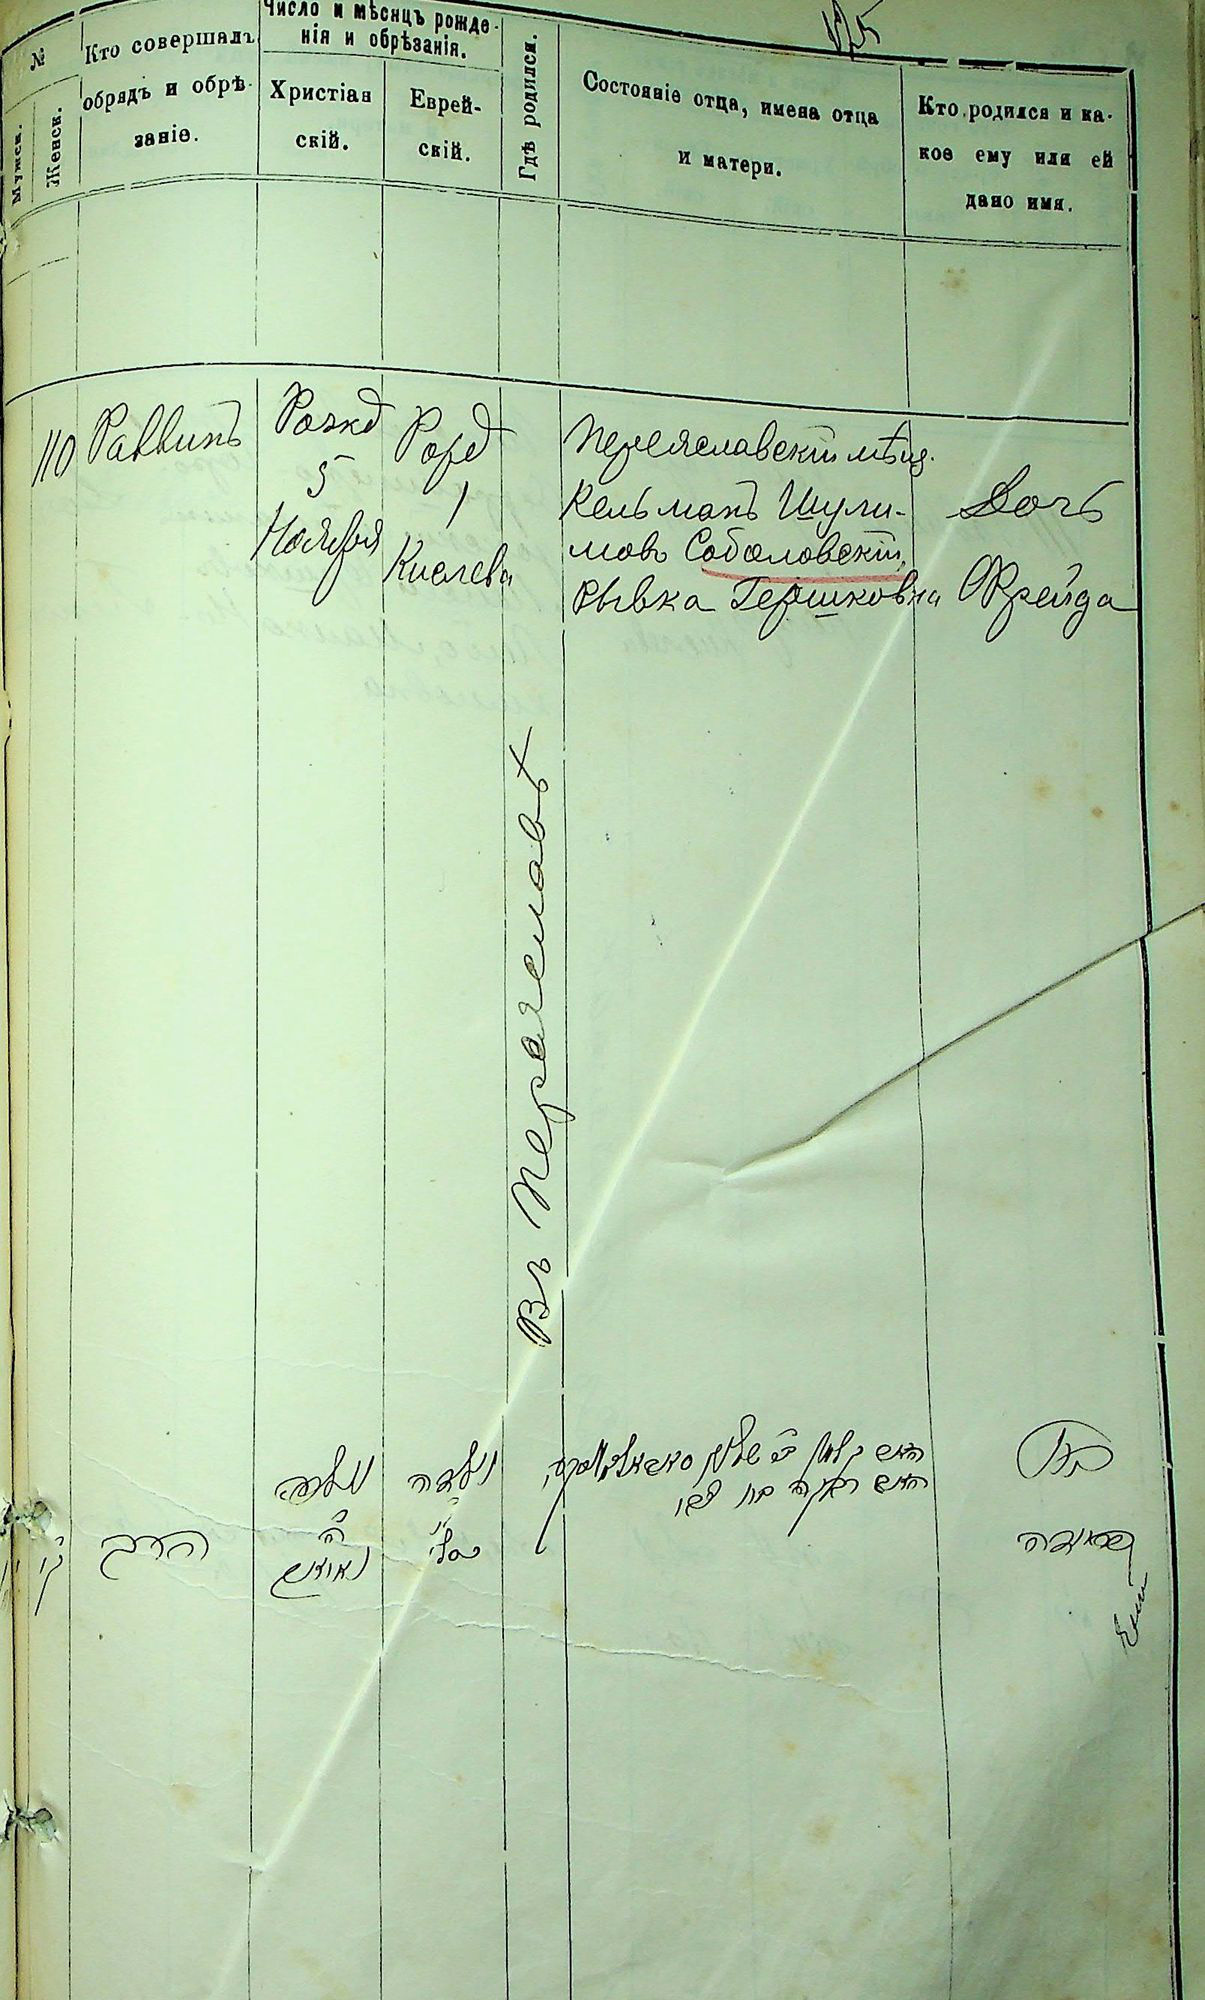 125
№
Мужск.
Женск.
Кто совершалъ
обрядъ и обрѣ-
заніе.
Число и мѣсяцъ рожде-
нія и обрѣзанія.
Христіан
скій.
Еврей-
скій.
Гдѣ родился.
Состояніе отца, имена отца
и матери.
Кто родился и ка-
кое ему или ей
дано имя.
110
Раввинъ
Рожд
5
Ноября
Рожд
1
Кислева
Въ Переяславѣ
Переяславскій мѣщ.
Кельманъ Шули-
мовъ Соболовскій,
Рывка Гершковна
Дочь
Фрейда
הרב
נולדה
ה
נולדה
בת
פריידה